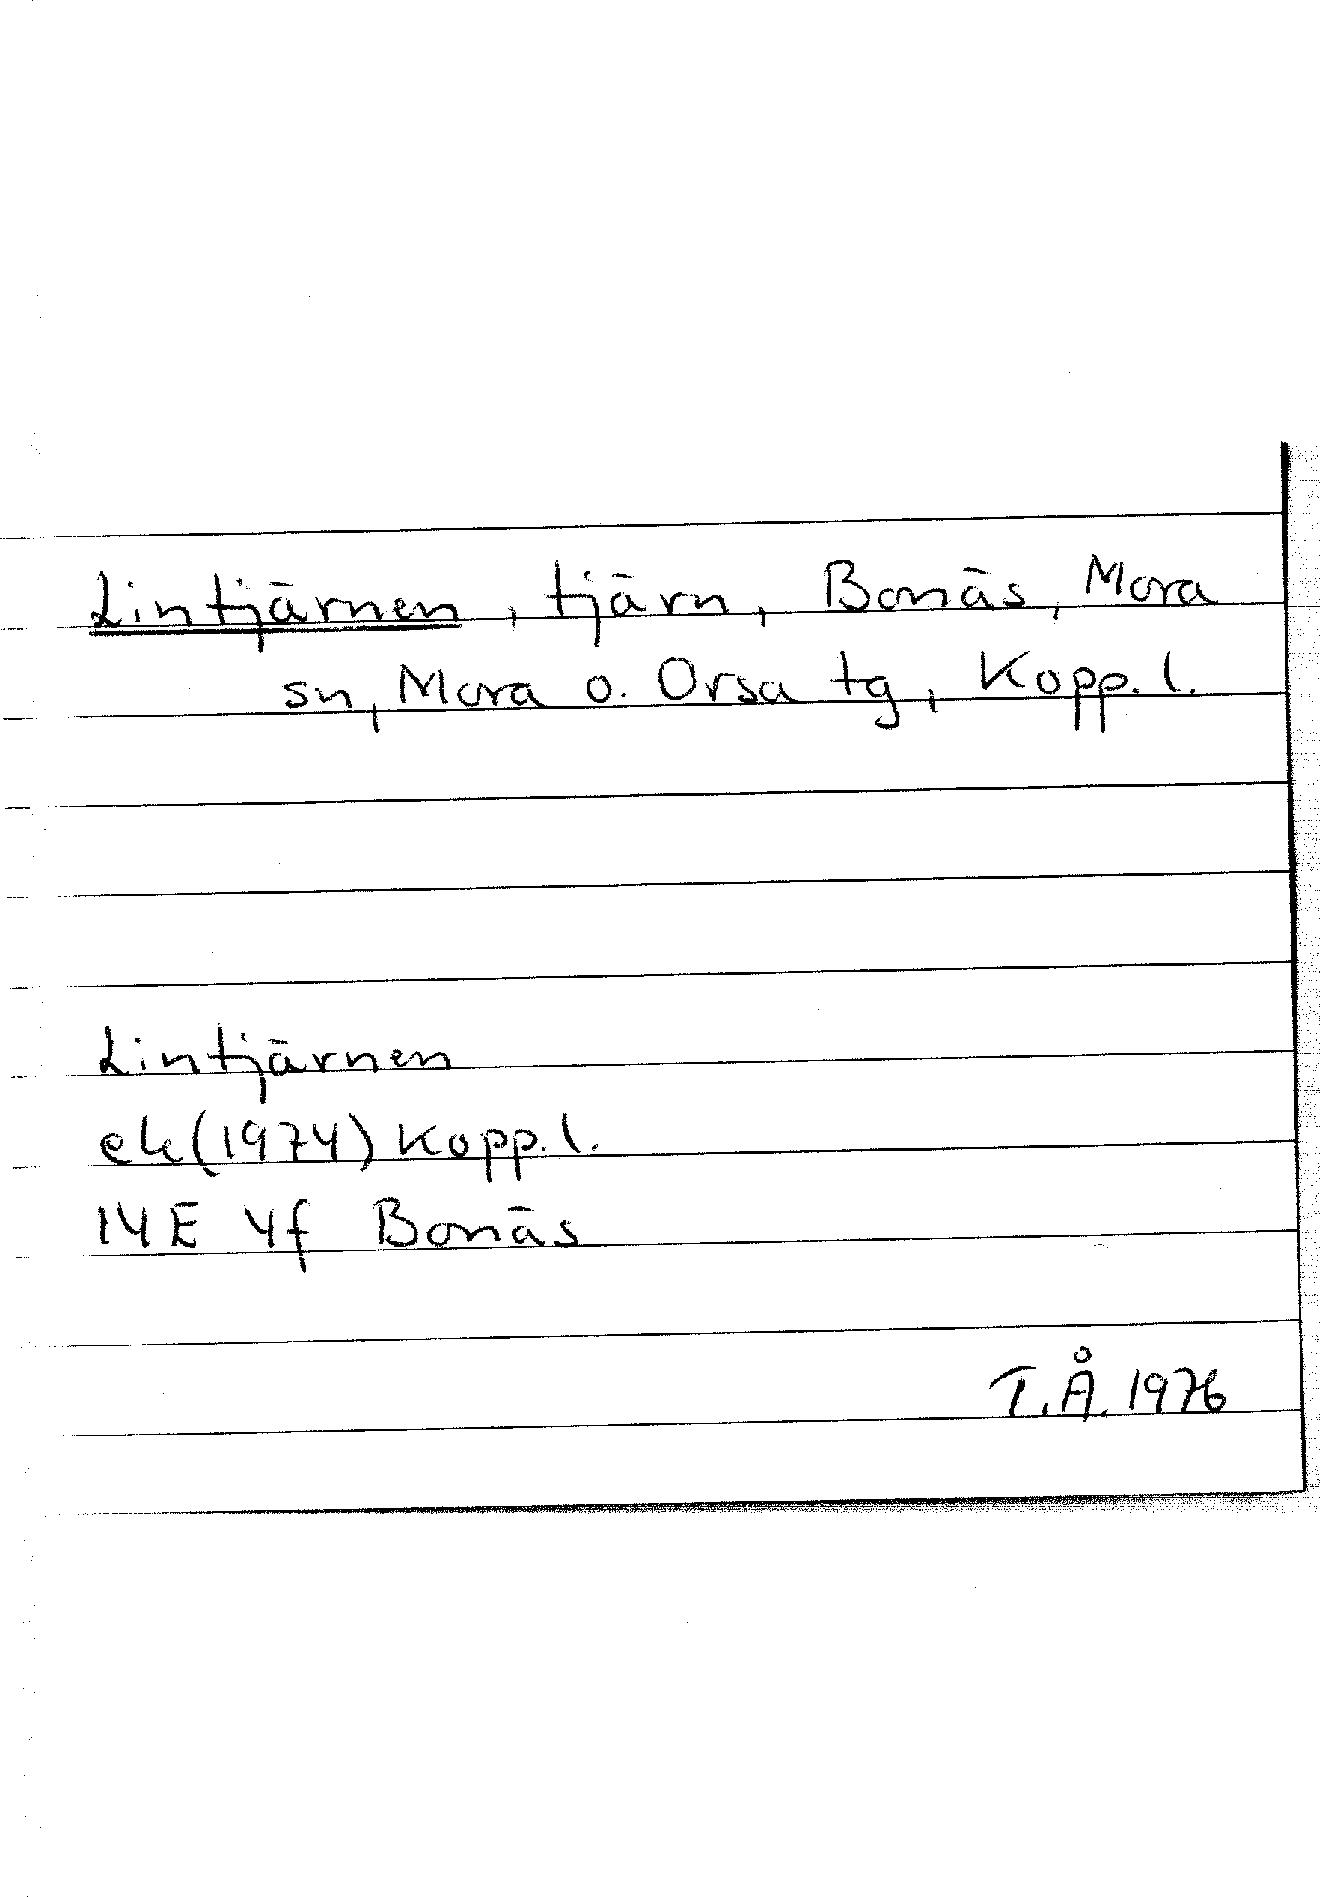 Lintjärnen, tjärn, Bonäs, Mora
sn, Mora o. Orsa tg, Kopp. l.
Lintjärnen
ek (1974) Kopp. l.
14E 4f Bonäs
T.Å. 1976